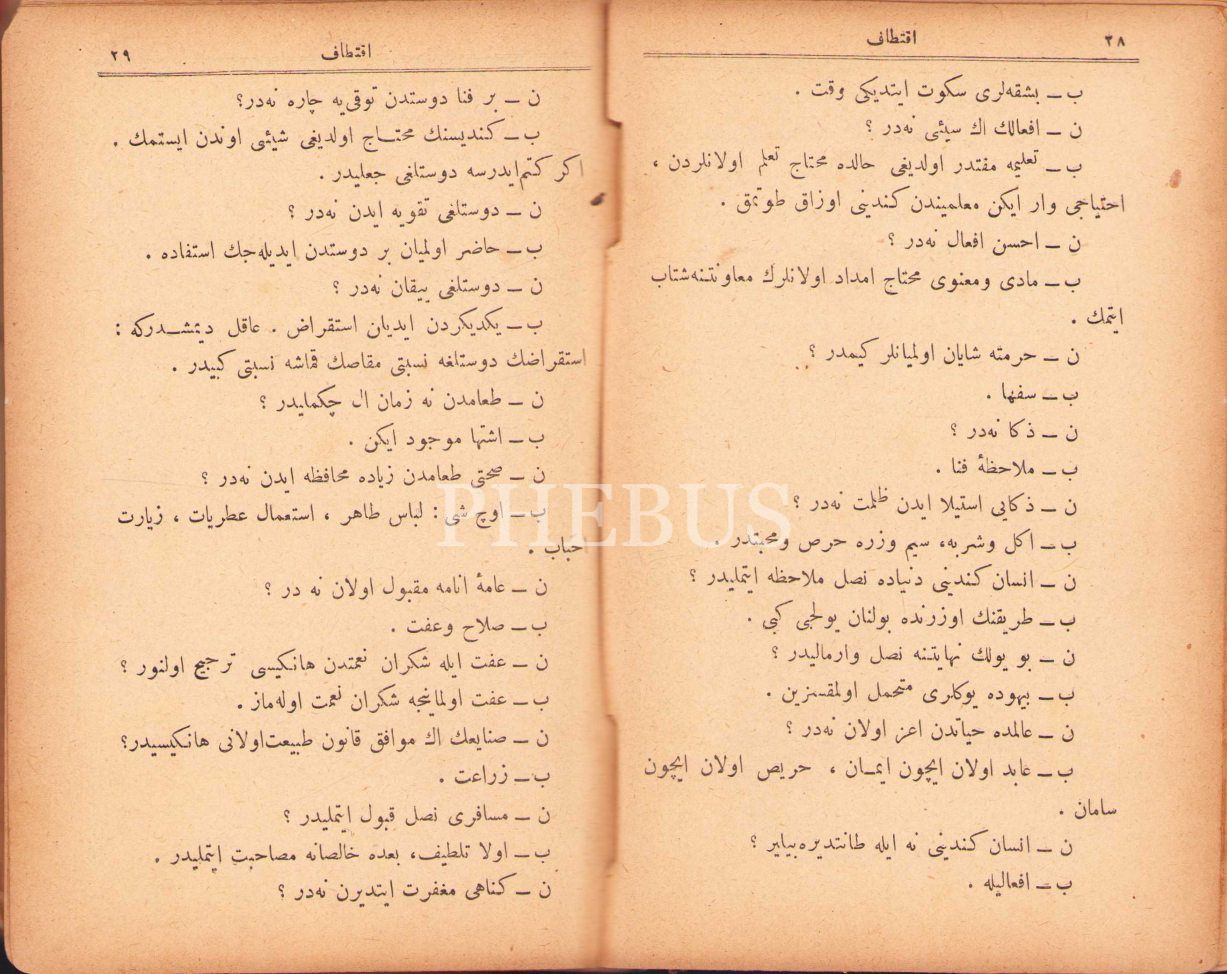 ٢٨
اقتطاف
ب — بشقه‌لری سكوت ایتدیكی وقت .
ن — افعالك اك سیئی نه‌در ؟
ب — تعلیمه مقتدر اولدیغی حالده محتاج تعلم اولانلردن ،
احتیاجی وار ایكن معلمیندن كندینی اوزاق طوتمق .
ن — احسن افعال نه‌در ؟
ب — مادی ومعنوی محتاج امداد اولانلرك معاونتنه‌شتاب
ایتمك .
ن — حرمته شایان اولمیانلر كیمدر ؟
ب — سفها .
ن — ذكا نه‌در ؟
ب — ملاحظۀ فنا .
ن — ذكایی استیلا ایدن ظلمت نه‌در ؟
ب — اكل وشربه، سیم وزره حرص ومحبتدر .
ن — انسان كندینی دنیاده نصل ملاحظه ایتملیدر ؟
ب — طریقنك اوزرنده بولنان یولجی كبی .
ن — بو یولك نهایتنه نصل وارمالیدر ؟
ب — بیهوده یوكلری متحمل اولمقسزین .
ن — عالمده حیاتدن اعز اولان نه‌در ؟
ب — عابد اولان ایچون ایمان ، حریص اولان ایچون
سامان .
ن — انسان كندینی نه ایله طانتدیره‌بیلیر ؟
ب — افعالیله .
اقتطاف
٢٩
ن — بر فنا دوستدن توقی‌یه چاره نه‌در؟
ب — كندیسنك محتاج اولدیغی شیئی اوندن ایستمك .
اكر كتم‌ایدرسه دوستلغی جعلیدر .
ن — دوستلغی تقویه ایدن نه‌در ؟
ب — حاضر اولمیان بر دوستدن ایدیله‌جك استفاده .
ن — دوستلغی ییقان نه‌در ؟
ب — یكدیكردن ایدیلن استقراض . عاقل دیمشدركه :
استقراضك دوستلغه نسبتی مقاصك قماشه نسبتی كبیدر .
ن — طعامدن نه زمان ال چكملیدر ؟
ب — اشتها موجود ایكن .
ن — صحتی طعامدن زیاده محافظه ایدن نه‌در ؟
ب — اوچ شی : لباس طاهر ، استعمال عطریات ، زیارت
احباب .
ن — عامۀ انامه مقبول اولان نه در ؟
ب — صلاح وعفت .
ن — عفت ایله شكران نعمتدن هانكیسی ترجیح اولنور ؟
ب — عفت اولماینجه شكران نعمت اوله‌ماز .
ن — صنایعك اك موافق قانون طبیعت‌اولانی هانكیسیدر؟
ب — زراعت .
ن — مسافری نصل قبول ایتملیدر ؟
ب — اولا تلطیف، بعده خالصانه مصاحبت ایتملیدر .
ن — كناهی مغفرت ایتدیرن نه‌در ؟
PHEBUS